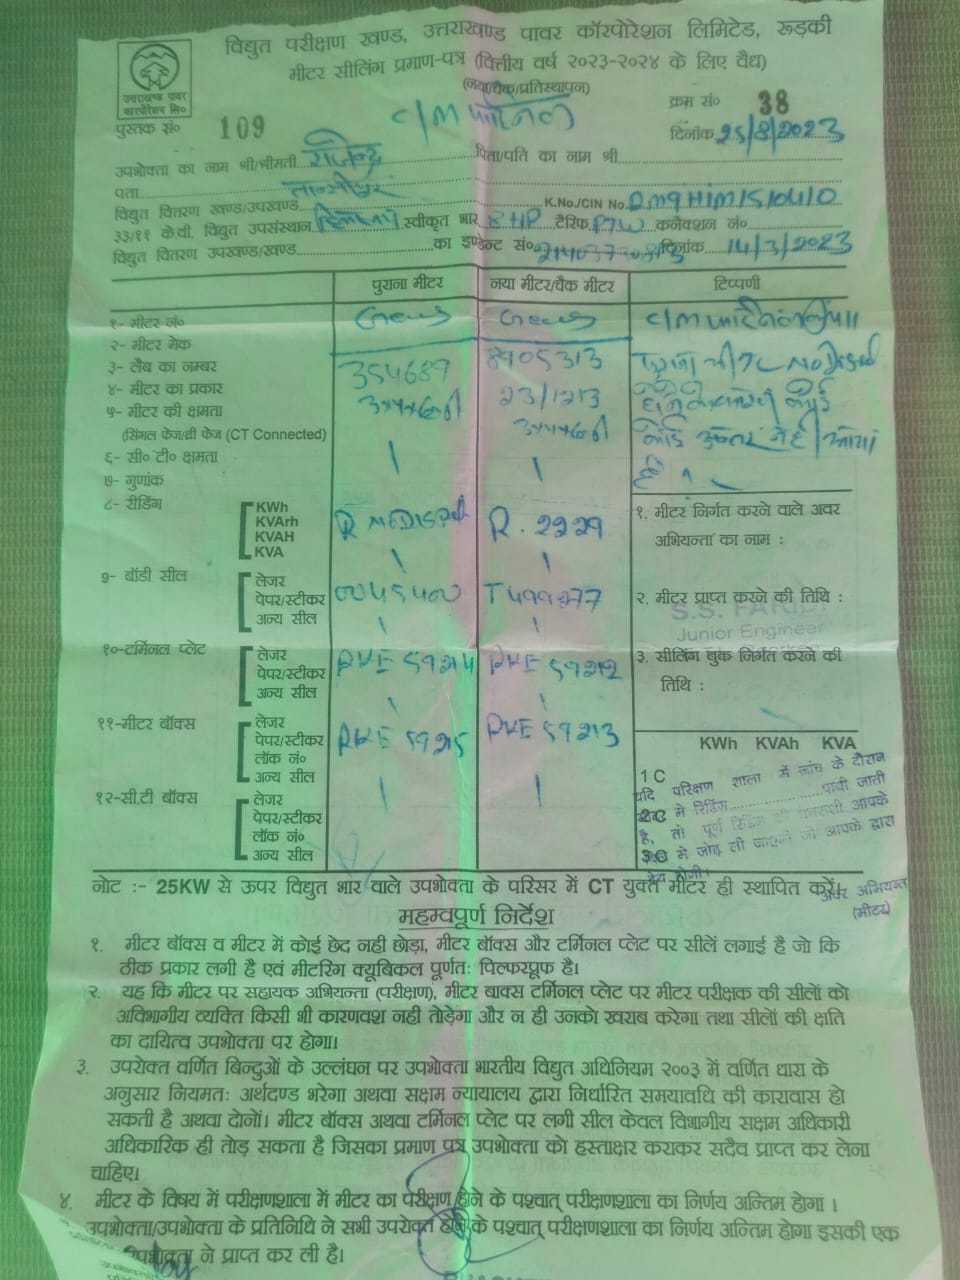 विद्युत परीक्षण खण्ड, उत्तराखण्ड पावर कॉरपोरेशन लिमिटेड, रूड़की
मीटर सीलिंग प्रमाण-पत्र (वित्तीय वर्ष २०२३-२०२४ के लिए वैध)
(नया/चैक/प्रतिस्थापन)
उत्तराखण्ड पावर
कारपोरेशन लि०
C/M फाईनल
क्रम सं० 38
पुस्तक सं० 109
दिनांक 25/8/2023
उपभोक्ता का नाम श्री/श्रीमती राजेन्द्र पिता/पति का नाम श्री
पता
विद्युत वितरण खण्ड/उपखण्ड K.No./CIN No.
३३/११ के.वी. विद्युत उपसंस्थान स्वीकृत भार 8HP टैरिफ PTW कनैक्शन नं०
विद्युत वितरण उपखण्ड/खण्ड का इण्डेन्ट सं० दिनांक 14/3/2023
पुराना मीटर नया मीटर/चैक मीटर टिप्पणी
१- मीटर नं० Genus Genus
२- मीटर मेक
३- लैब का नम्बर 354689 8905313
४- मीटर का प्रकार 23/1213
५- मीटर की क्षमता
(सिंगल फेज/थ्री फेज (CT Connected)
६- सी० टी० क्षमता
७- गुणांक
८- रीडिंग KWh
KVArh
KVAH
KVA
R. 2229
१. मीटर निर्गत करने वाले अवर
अभियन्ता का नाम :
९- बॉडी सील लेजर
पेपर/स्टीकर
अन्य सील
0045400 T499277
२. मीटर प्राप्त करने की तिथि :
Junior Engineer
१०-टर्मिनल प्लेट लेजर
पेपर/स्टीकर
अन्य सील
RKE 59214 RKE 59212
३. सीलिंग बुक निर्गत करने की
तिथि :
११-मीटर बॉक्स लेजर
पेपर/स्टीकर
लॉक नं०
अन्य सील
RKE 59215 RKE 59213
KWh KVAh KVA
1 C
2C
3C
यदि परिक्षण शाला में जांच के दौरान
मे रिडिंग पायी जाती
है, तो पूर्ण रिडिंग आपके
मे जोड़ ली आपके द्वारा
१२-सी.टी बॉक्स लेजर
पेपर/स्टीकर
लॉक नं०
अन्य सील
अवर अभियन्ता
(मीटर)
नोट :- 25KW से ऊपर विद्युत भार वाले उपभोक्ता के परिसर में CT युक्त मीटर ही स्थापित करें।
महत्वपूर्ण निर्देश
१. मीटर बॉक्स व मीटर में कोई छेद नही छोड़ा, मीटर बॉक्स और टर्मिनल प्लेट पर सीलें लगाई है जो कि
ठीक प्रकार लगी है एवं मीटरिंग क्यूबिकल पूर्णतः पिल्फरप्रूफ है।
२. यह कि मीटर पर सहायक अभियन्ता (परीक्षण), मीटर बाक्स टर्मिनल प्लेट पर मीटर परीक्षक की सीलों को
अविभागीय व्यक्ति किसी भी कारणवश नही तोड़ेगा और न ही उनको खराब करेगा तथा सीलों की क्षति
का दायित्व उपभोक्ता पर होगा।
३. उपरोक्त वर्णित बिन्दुओं के उल्लंघन पर उपभोक्ता भारतीय विद्युत अधिनियम २००३ में वर्णित धारा के
अनुसार नियमतः अर्थदण्ड भरेगा अथवा सक्षम न्यायालय द्वारा निर्धारित समयावधि की कारावास हो
सकती है अथवा दोनों। मीटर बॉक्स अथवा टर्मिनल प्लेट पर लगी सील केवल विभागीय सक्षम अधिकारी
अधिकारिक ही तोड़ सकता है जिसका प्रमाण पत्र उपभोक्ता को हस्ताक्षर कराकर सदैव प्राप्त कर लेना
चाहिए।
४. मीटर के विषय में परीक्षणशाला में मीटर का परीक्षण होने के पश्चात् परीक्षणशाला का निर्णय अन्तिम होगा ।
उपभोक्ता/उपभोक्ता के प्रतिनिधि ने सभी उपरोक्त होने के पश्चात् परीक्षणशाला का निर्णय अन्तिम होगा इसकी एक
उपभोक्ता ने प्राप्त कर ली है।